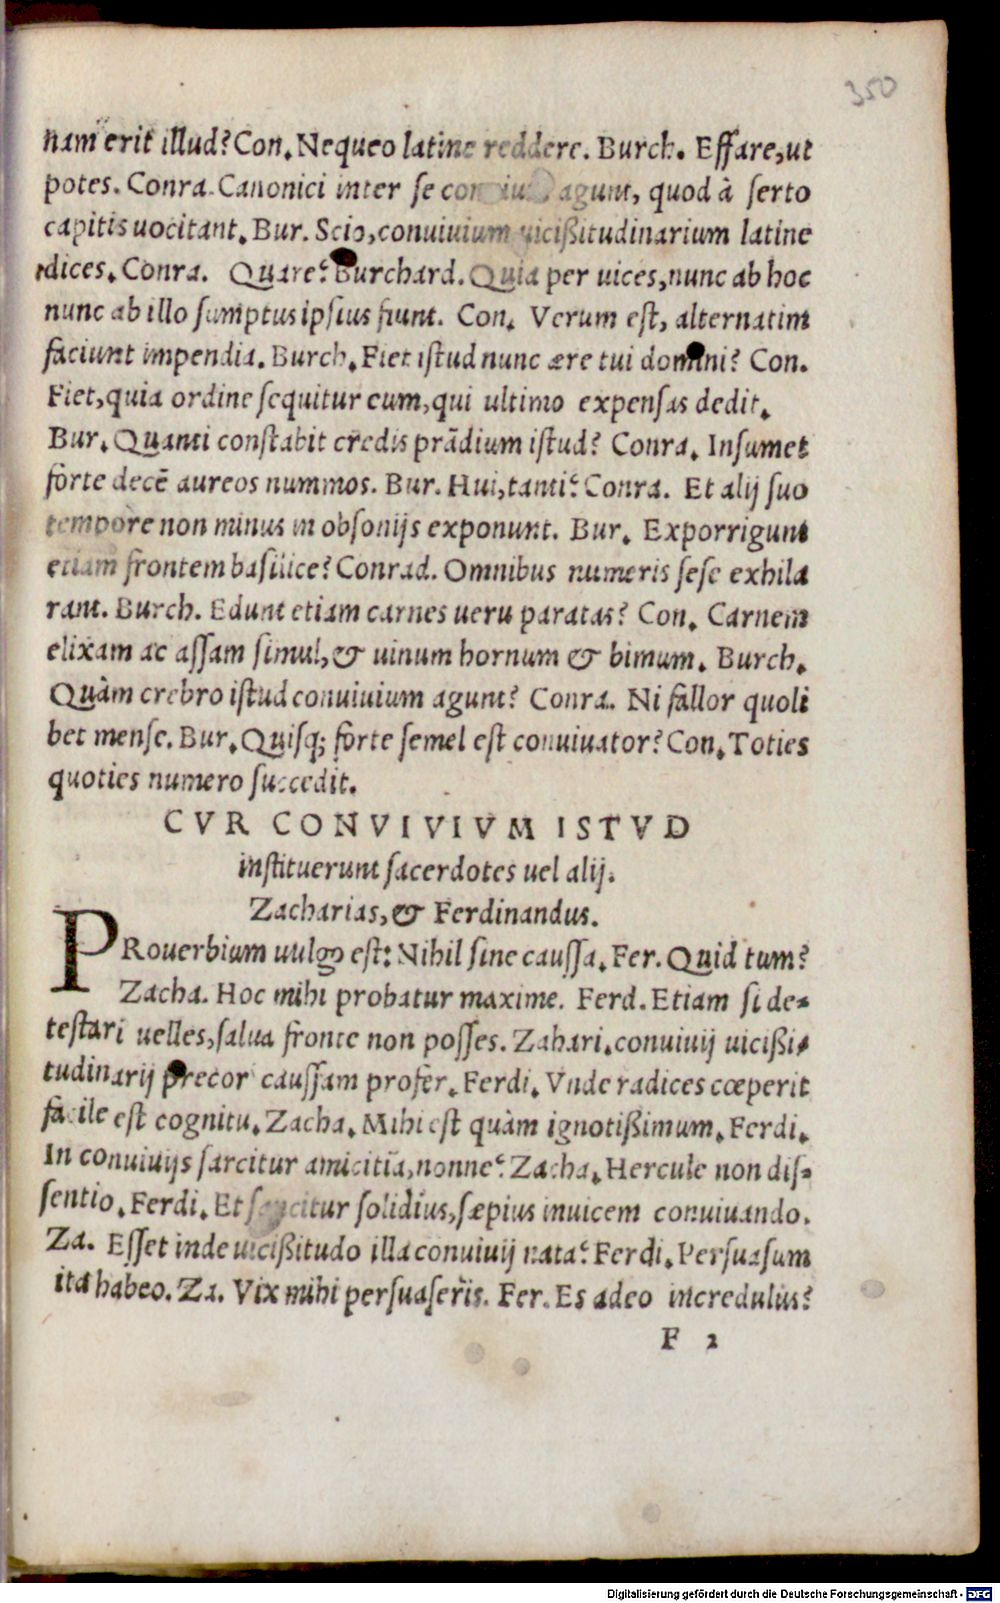 350
nam erit illud? Con. Nequeo latine reddere. Burch. Effare, ut
potes. Conra. Canonici inter se conuiuium agunt, quod à serto
capitis uocitant. Bur. Scio, conuiuium uicißitudinarium latine
dices. Conra. Quare? Burchard. Quia per uices, nunc ab hoc
nunc ab illo sumptus ipsius fiunt. Con. Verum est, alternatim
faciunt impendia. Burch. Fiet istud nunc ære tui domini? Con.
Fiet, quia ordine sequitur eum, qui ultimo expensas dedit.
Bur. Quanti constabit credis prādium istud? Conra. Insumet
forte decē aureos nummos. Bur. Hui, tanti? Conra. Et alij suo
tempore non minus in obsonijs exponunt. Bur. Exporrigunt
etiam frontem basilice? Conrad. Omnibus numeris sese exhila
rant. Burch. Edunt etiam carnes ueru paratas? Con. Carnem
elixam ac assam simul, & uinum hornum & bimum. Burch.
Quàm crebro istud conuiuium agunt? Conra. Ni fallor quoli
bet mense. Bur. Quisq; forte semel est conuiuator? Con. Toties
quoties numero succedit.
CVR CONVIVIVM ISTVD
instituerunt sacerdotes uel alij.
Zacharias, & Ferdinandus.
PRouerbium uulgo est: Nihil sine caussa. Fer. Quid tum?
Zacha. Hoc mihi probatur maxime. Ferd. Etiam si de-
testari uelles, salua fronte non posses. Zahari. conuiuij uicißi-
tudinarij precor caussam profer. Ferdi. Vnde radices cœperit
facile est cognitu. Zacha. Mihi est quàm ignotißimum. Ferdi.
In conuiuijs sarcitur amicitia, nonne? Zacha. Hercule non dis-
sentio. Ferdi. Et sarcitur solidius, sæpius inuicem conuiuando.
Za. Esset inde uicißitudo illa conuiuij nata? Ferdi. Persuasum
ita habeo. Za. Vix mihi persuaseris. Fer. Es adeo incredulus?
F 2
Digitalisierung gefördert durch die Deutsche Forschungsgemeinschaft - DFG